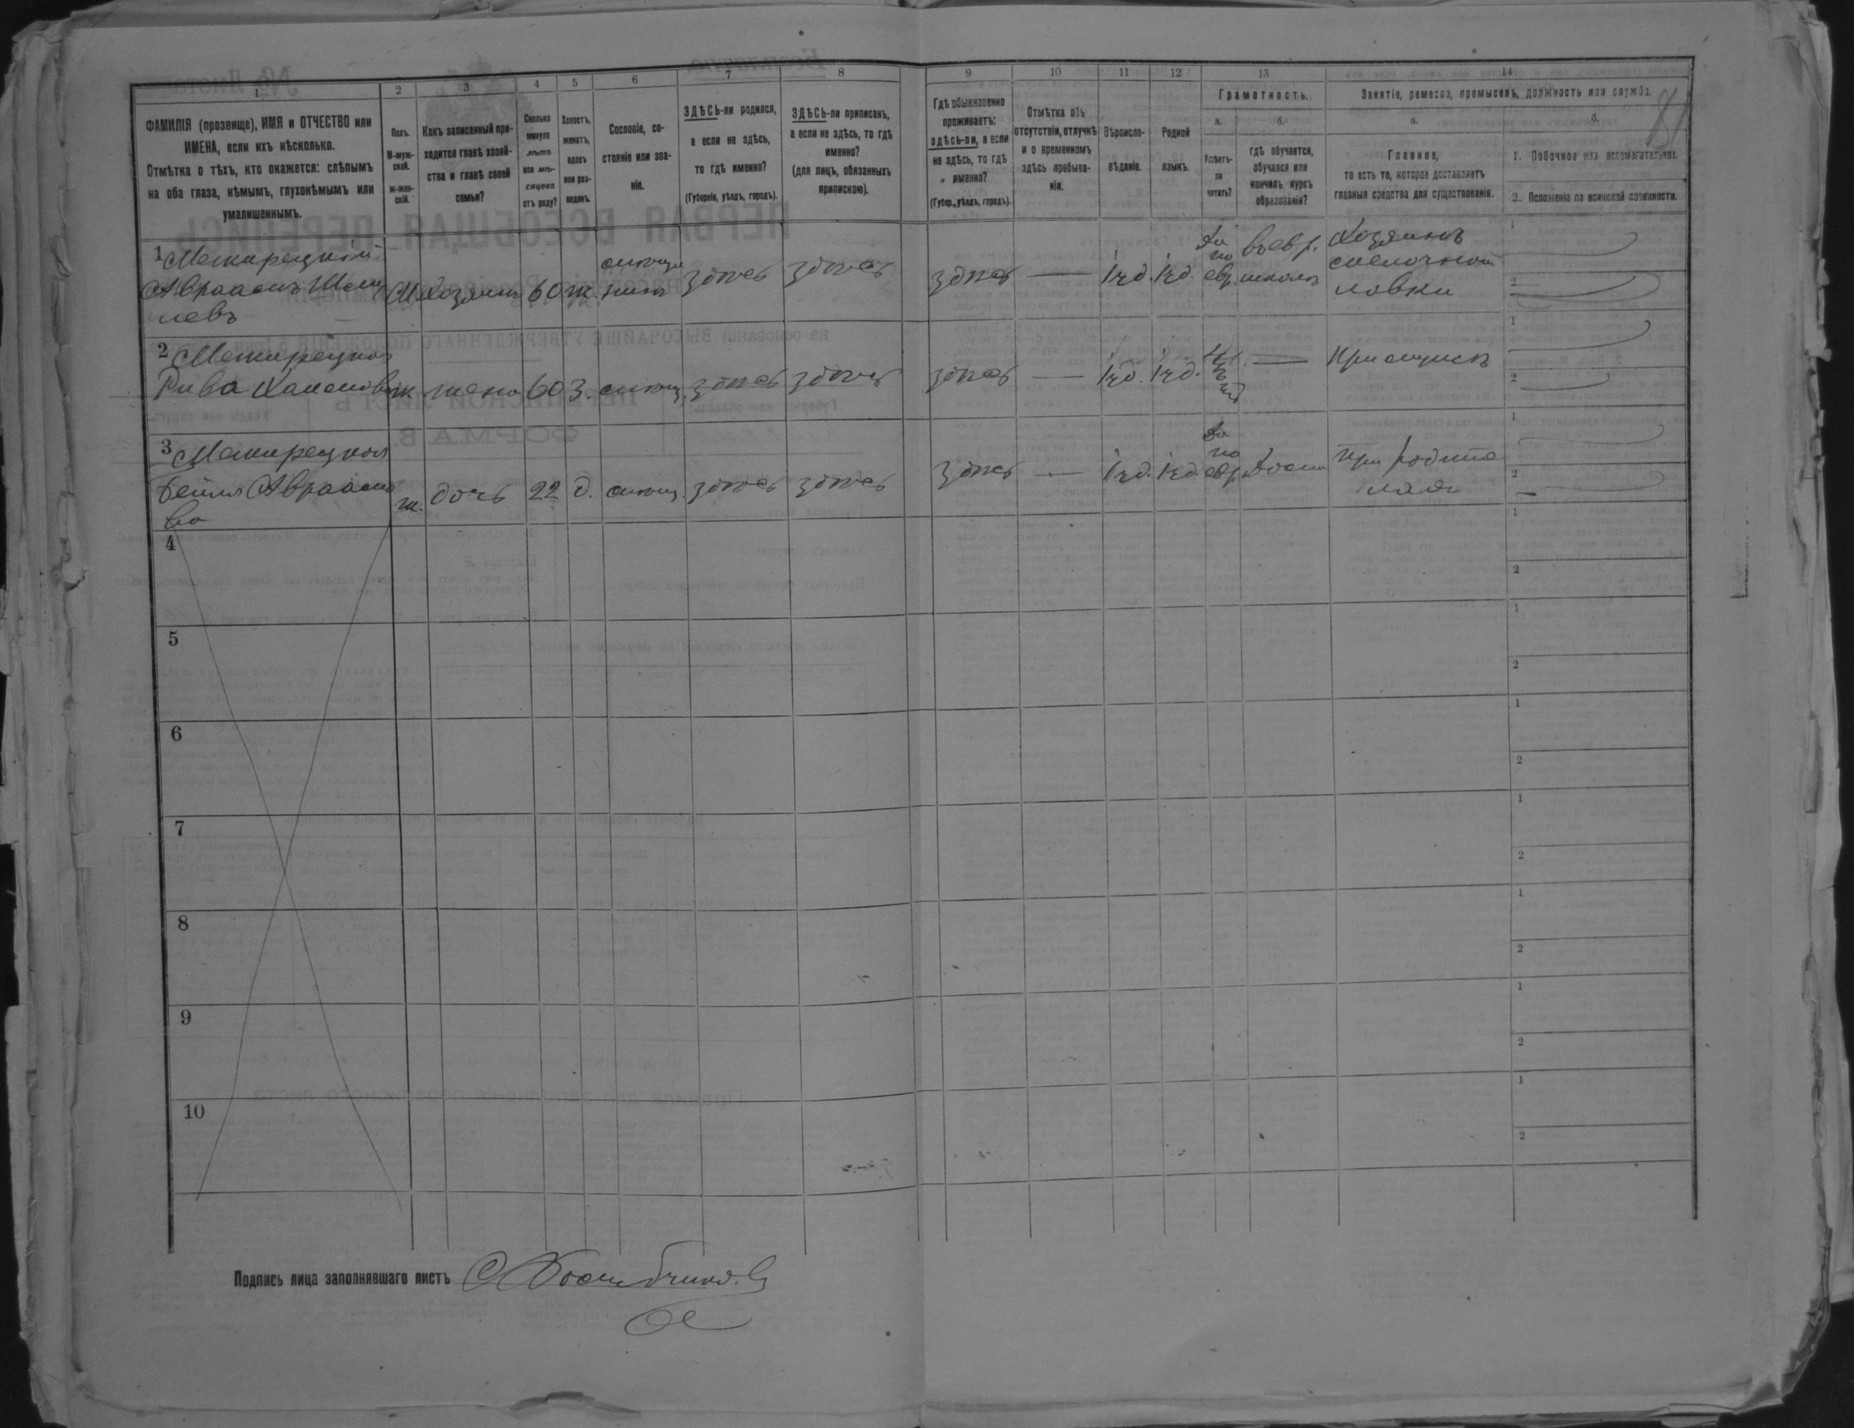 1 2 3 4 5 6 7 8 9 10 11 12 13 14
ФАМИЛІЯ (прозвище), ИМЯ и ОТЧЕСТВО или
ИМЕНА, если ихъ нѣсколько.
Отмѣтка о тѣхъ, кто окажется: слѣпымъ
на оба глаза, нѣмымъ, глухонѣмымъ или
умалишеннымъ.
Полъ.
М-муж-
ской.
Ж-жен-
скій.
Какъ записанный при-
ходится главѣ хозяй-
ства и главѣ своей
семьи?
Сколько
минуло
лѣтъ
или мѣ-
сяцевъ
отъ роду?
Холостъ,
женатъ,
вдовъ
или раз-
веденъ.
Сословіе, со-
стояніе или зва-
ніе.
ЗДѢСЬ-ли родился,
а если не здѣсь,
то гдѣ именно?
(Губернія, уѣздъ, городъ).
ЗДѢСЬ-ли приписанъ,
а если не здѣсь, то гдѣ
именно?
(для лицъ, обязанныхъ
припискою).
Гдѣ обыкновенно
проживаетъ:
здѣсь-ли, а если
не здѣсь, то гдѣ
именно?
(Губер., уѣздъ, городъ).
Отмѣтка объ
отсутствіи, отлучкѣ
и о временномъ
здѣсь пребыва-
ніи.
Вѣроиспо-
вѣданіе.
Родной
языкъ.
Грамотность.
а.
Умѣетъ-
ли
читать?
б.
гдѣ обучается,
обучался или
кончилъ курсъ
образованія?
Занятіе, ремесло, промыселъ, должность или служба.
а.
Главное,
то есть то, которое доставляетъ
главныя средства для существованія.
б.
1. Побочное или вспомогательное.
2. Положеніе по воинской повинности.
1 Межирецкій
Авраамъ
левъ
М Хозяинъ 60 ж. здѣсь здѣсь здѣсь — Іуд. Іуд.
Да
по
евр.
въ евр.
школѣ
Хозяинъ
мелочной
лавки
1
2
2 Межирецкая
Рива
ж. жена 60 З. здѣсь здѣсь здѣсь — Іуд. Іуд. —
При мужѣ
1
2
3 Межирецкая
Бейля Авраамо
ва
ж. дочь 22 д. здѣсь здѣсь здѣсь — Іуд. Іуд.
Да
по
евр.
Дома
При родите
ляхъ
1
2
4 1
2
5 1
2
6 1
2
7 1
2
8 1
2
9 1
2
10 1
2
Подпись лица заполнявшаго листъ